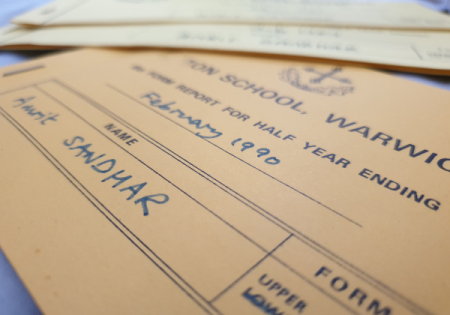 TON SCHOOL, WARWIC
6th FORM REPORT FOR HALF YEAR ENDING
February 1990
NAME
Amrit SANDHAR
FORM
UPPER
LOW